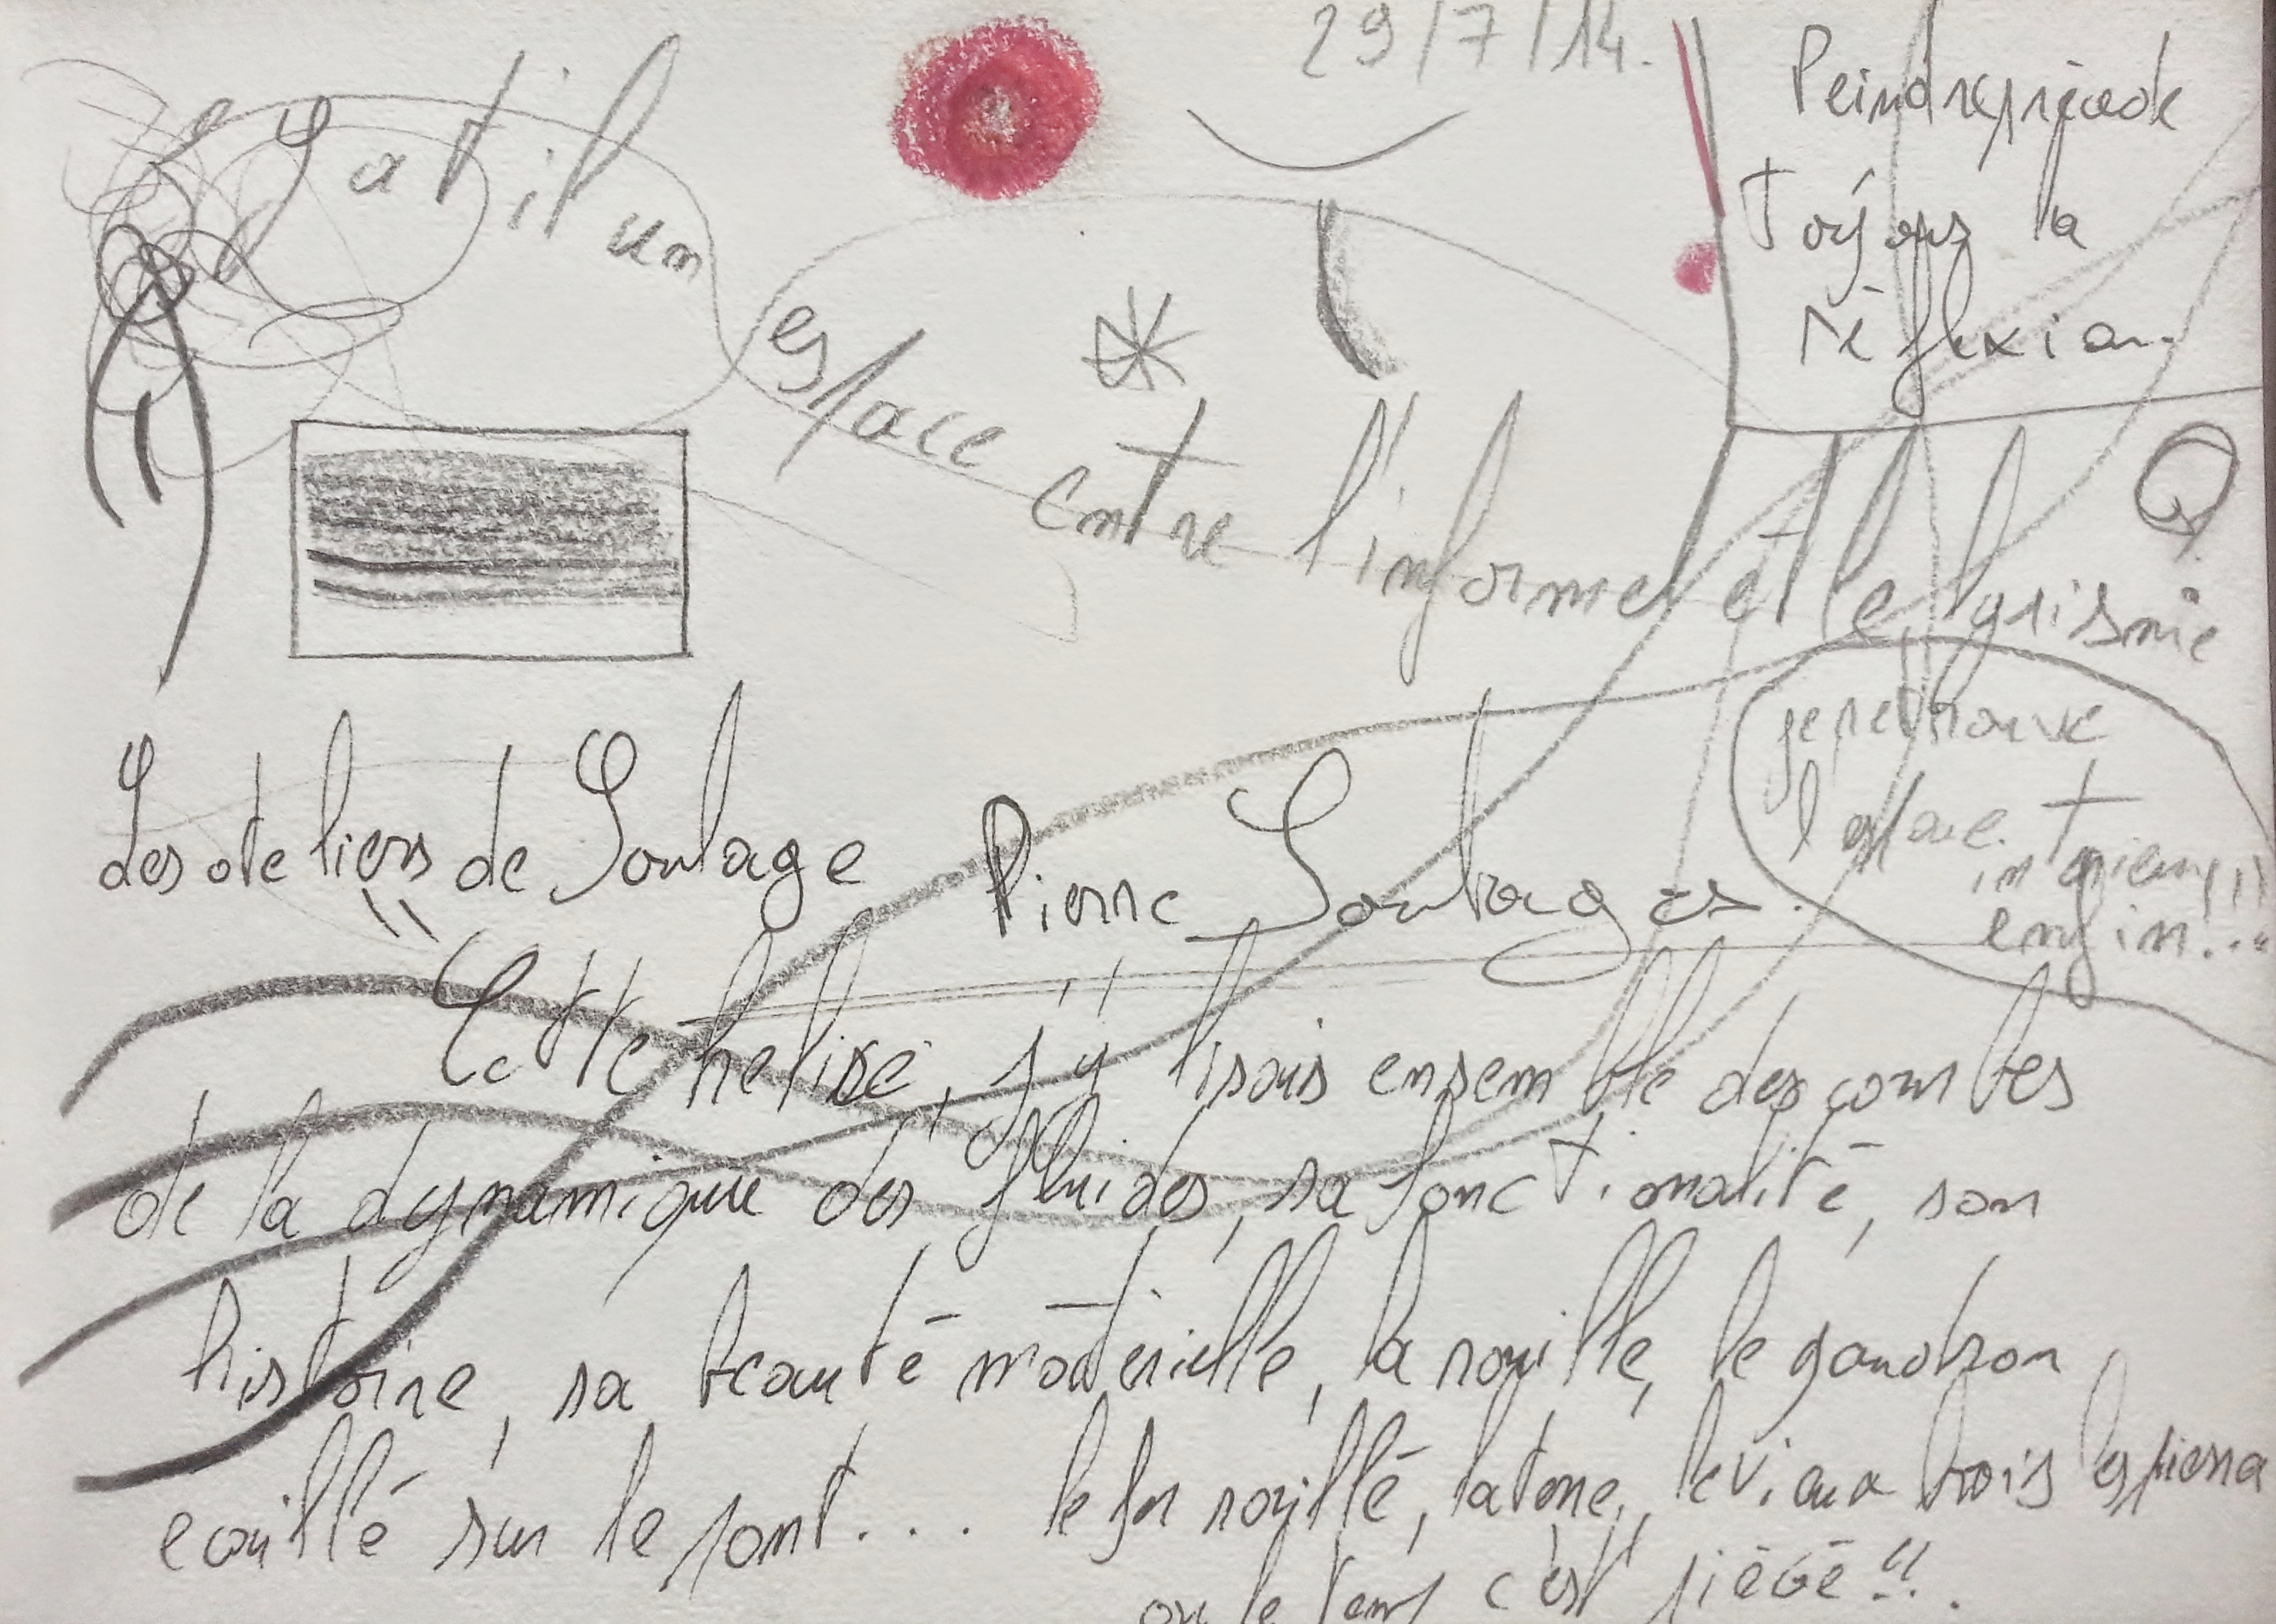 29/7/14.
Peindre précède
Toujours la
réflexion.
Y a t il un
espace entre l'informel et le lyrisme
je retrouve
l'espace
intérieur,,,
enfin!..
Les ateliers de Soulage
Pierre Soulages.
"Cette hélice, j'y lisais ensemble des courbes
de la dynamique des fluides, sa fonctionalité, son
histoire, sa beauté matérielle, la rouille, le goudron
écaillé sur le pont... le fer rouillé, la terre, le vieux bois les pierres
ou le temps c'est piégé!!.